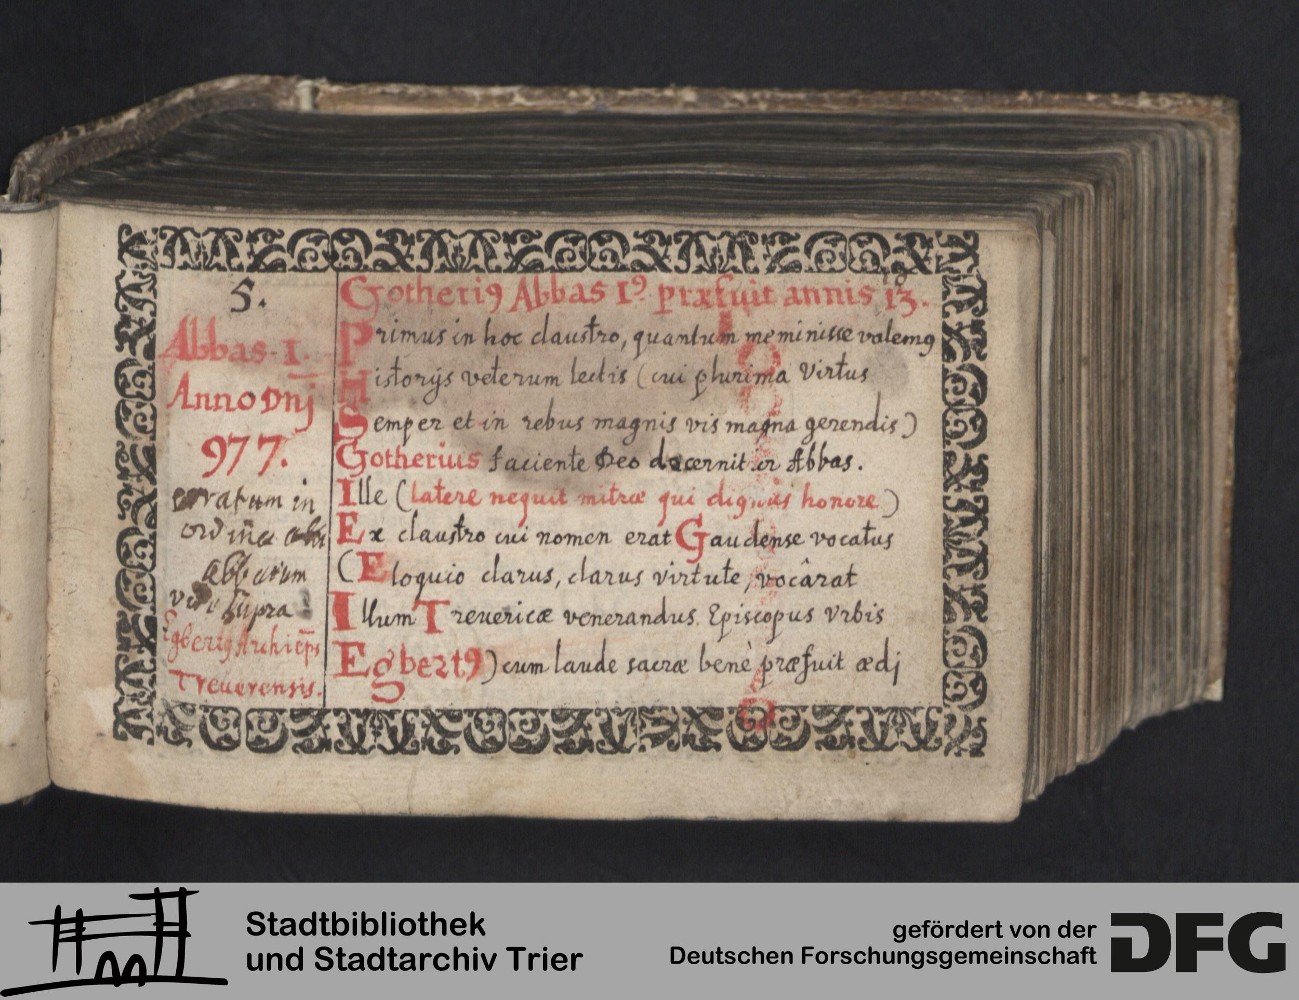 5.
Abbas. I.
Anno Dnj
977.
erratum in
abbatum
supra
Egbert9 Archiēps
Treuerensis.
Gotheri9 Abbas I9 præfuit annis 13.
Primus in hoc claustro, quantum meminisse valem9
Historijs veterum lectis (cui plurima Virtus
Semper et in rebus magnis vis magna gerendis)
Gotherius faciente Deo decernitur Abbas.
Ille (latere nequit mitræ qui dignus honore)
Ex claustro cui nomen erat Gaudense vocatus
(Eloquio clarus, clarus virtute, vocârat
Illum Treuericæ venerandus Episcopus Vrbis
Egbert9) cum laude sacræ benè præfuit ædj
Stadtbibliothek
und Stadtarchiv Trier
gefördert von der
Deutschen Forschungsgemeinschaft
DFG